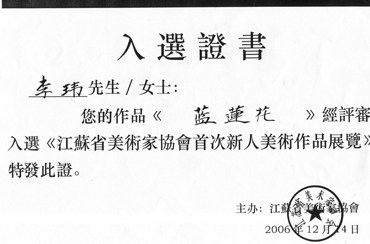 入選證書
李玮先生/女士:
您的作品《 藍蓮花 》經評審
入選《江蘇省美術家協會首次新人美術作品展覽》
特發此證。
主办: 江蘇省美術家協會
2006年12月14日